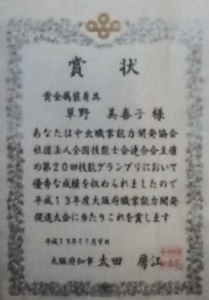 賞状
貴金属装身具
草野 美喜子 様
あなたは中央職業能力開発協会
社団法人全国技能士会連合会主催
の第20回技能グランプリにおいて
優秀な成績を収められましたので
平成13年度大阪府職業能力開発
促進大会に当たりこれを賞します
平成13年11月
大阪府知事 太田 房江